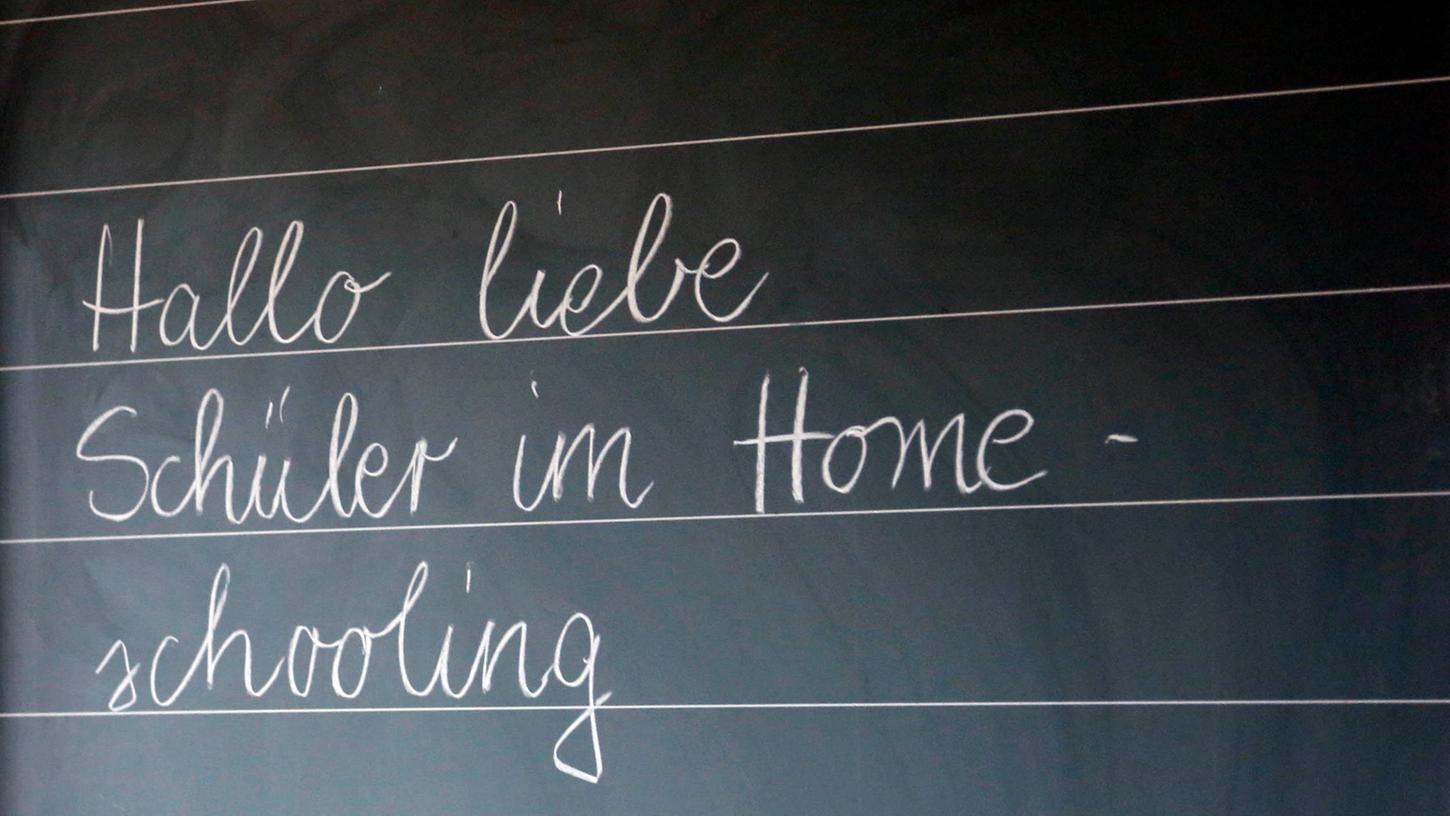 Hallo liebe
Schüler im Home -
schooling